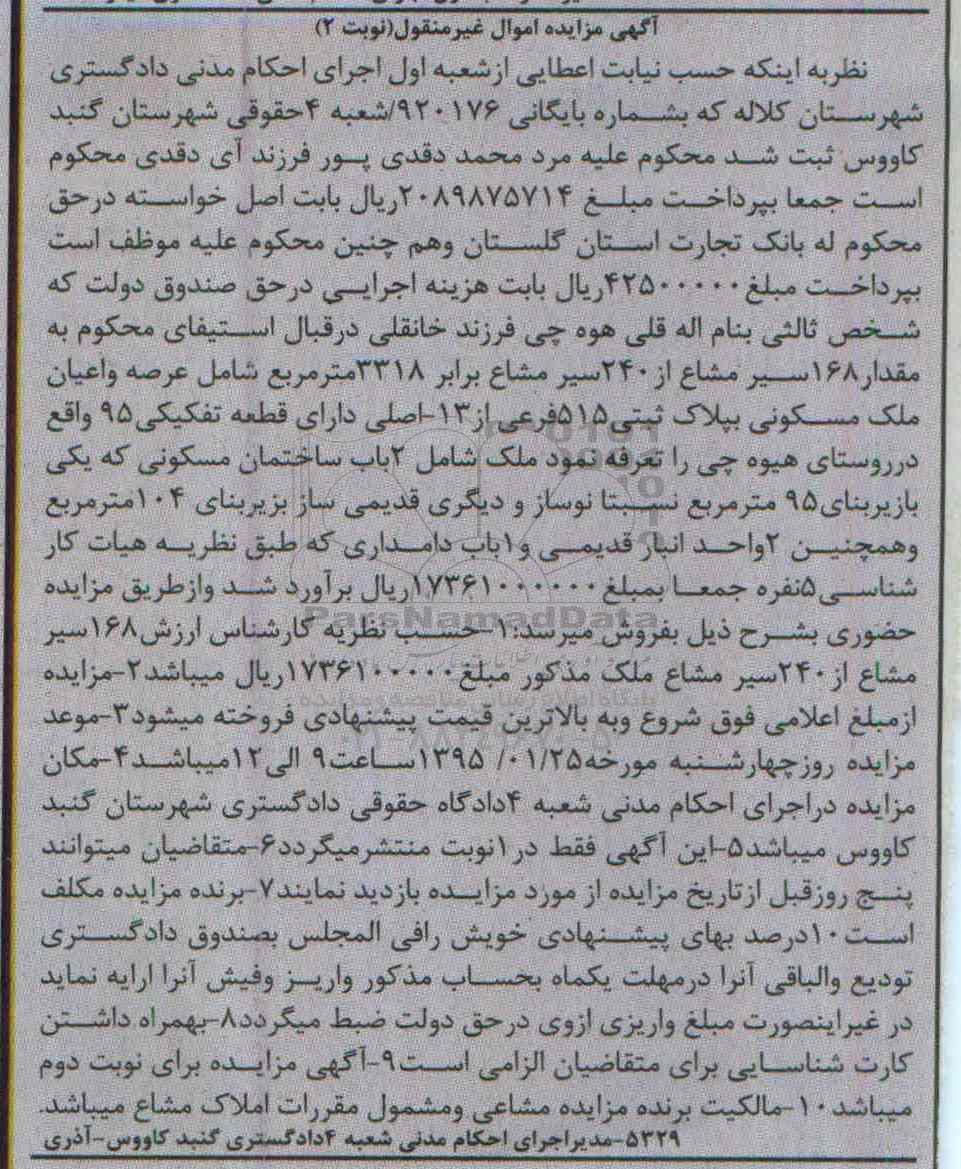 آگهی مزایده اموال غیرمنقول(نوبت ۲)
نظربه اینکه حسب نیابت اعطایی ازشعبه اول اجرای احکام مدنی دادگستری
شهرستان کلاله که بشماره بایگانی ۹۲۰۱۷۶/شعبه ۴حقوقی شهرستان گنبد
کاووس ثبت شد محکوم علیه مرد محمد دقدی پور فرزند آی دقدی محکوم
است جمعا بپرداخت مبلغ ۲۰۸۹۸۷۵۷۱۴ریال بابت اصل خواسته درحق
محکوم له بانک تجارت استان گلستان وهم چنین محکوم علیه موظف است
بپرداخت مبلغ۴۲۵۰۰۰۰۰ریال بابت هزینه اجرایی درحق صندوق دولت که
شخص ثالثی بنام اله قلی هوه چی فرزند خانقلی درقبال استیفای محکوم به
مقدار۱۶۸سیر مشاع از۲۴۰سیر مشاع برابر ۳۳۱۸مترمربع شامل عرصه واعیان
ملک مسکونی بپلاک ثبتی۵۱۵فرعی از۱۳-اصلی دارای قطعه تفکیکی۹۵ واقع
درروستای هیوه چی را تعرفه نمود ملک شامل ۲باب ساختمان مسکونی که یکی
بازیربنای۹۵ مترمربع نسبتا نوساز و دیگری قدیمی ساز بزیربنای ۱۰۴مترمربع
وهمچنین ۲واحد انبار قدیمی و۱باب دامداری که طبق نظریه هیات کار
شناسی۵نفره جمعا بمبلغ۱۷۳۶۱۰۰۰۰۰۰ریال برآورد شد وازطریق مزایده
حضوری بشرح ذیل بفروش میرسد:۱-حسب نظریه کارشناس ارزش۱۶۸سیر
مشاع از۲۴۰سیر مشاع ملک مذکور مبلغ۱۷۳۶۱۰۰۰۰۰ریال میباشد۲-مزایده
ازمبلغ اعلامی فوق شروع وبه بالاترین قیمت پیشنهادی فروخته میشود۳-موعد
مزایده روزچهارشنبه مورخه۰۱/۲۵/ ۱۳۹۵ساعت۹ الی۱۲میباشد۴-مکان
مزایده دراجرای احکام مدنی شعبه ۴دادگاه حقوقی دادگستری شهرستان گنبد
کاووس میباشد۵-این آگهی فقط در۱نوبت منتشرمیگردد۶-متقاضیان میتوانند
پنج روزقبل ازتاریخ مزایده از مورد مزایده بازدید نمایند۷-برنده مزایده مکلف
است۱۰درصد بهای پیشنهادی خویش رافی المجلس بصندوق دادگستری
تودیع والباقی آنرا درمهلت یکماه بحساب مذکور واریز وفیش آنرا ارایه نماید
در غیراینصورت مبلغ واریزی ازوی درحق دولت ضبط میگردد۸-بهمراه داشتن
کارت شناسایی برای متقاضیان الزامی است۹-آگهی مزایده برای نوبت دوم
میباشد۱۰-مالکیت برنده مزایده مشاعی ومشمول مقررات املاک مشاع میباشد.
۵۳۲۹-مدیراجرای احکام مدنی شعبه ۴دادگستری گنبد کاووس-آذری
ParsNamadData